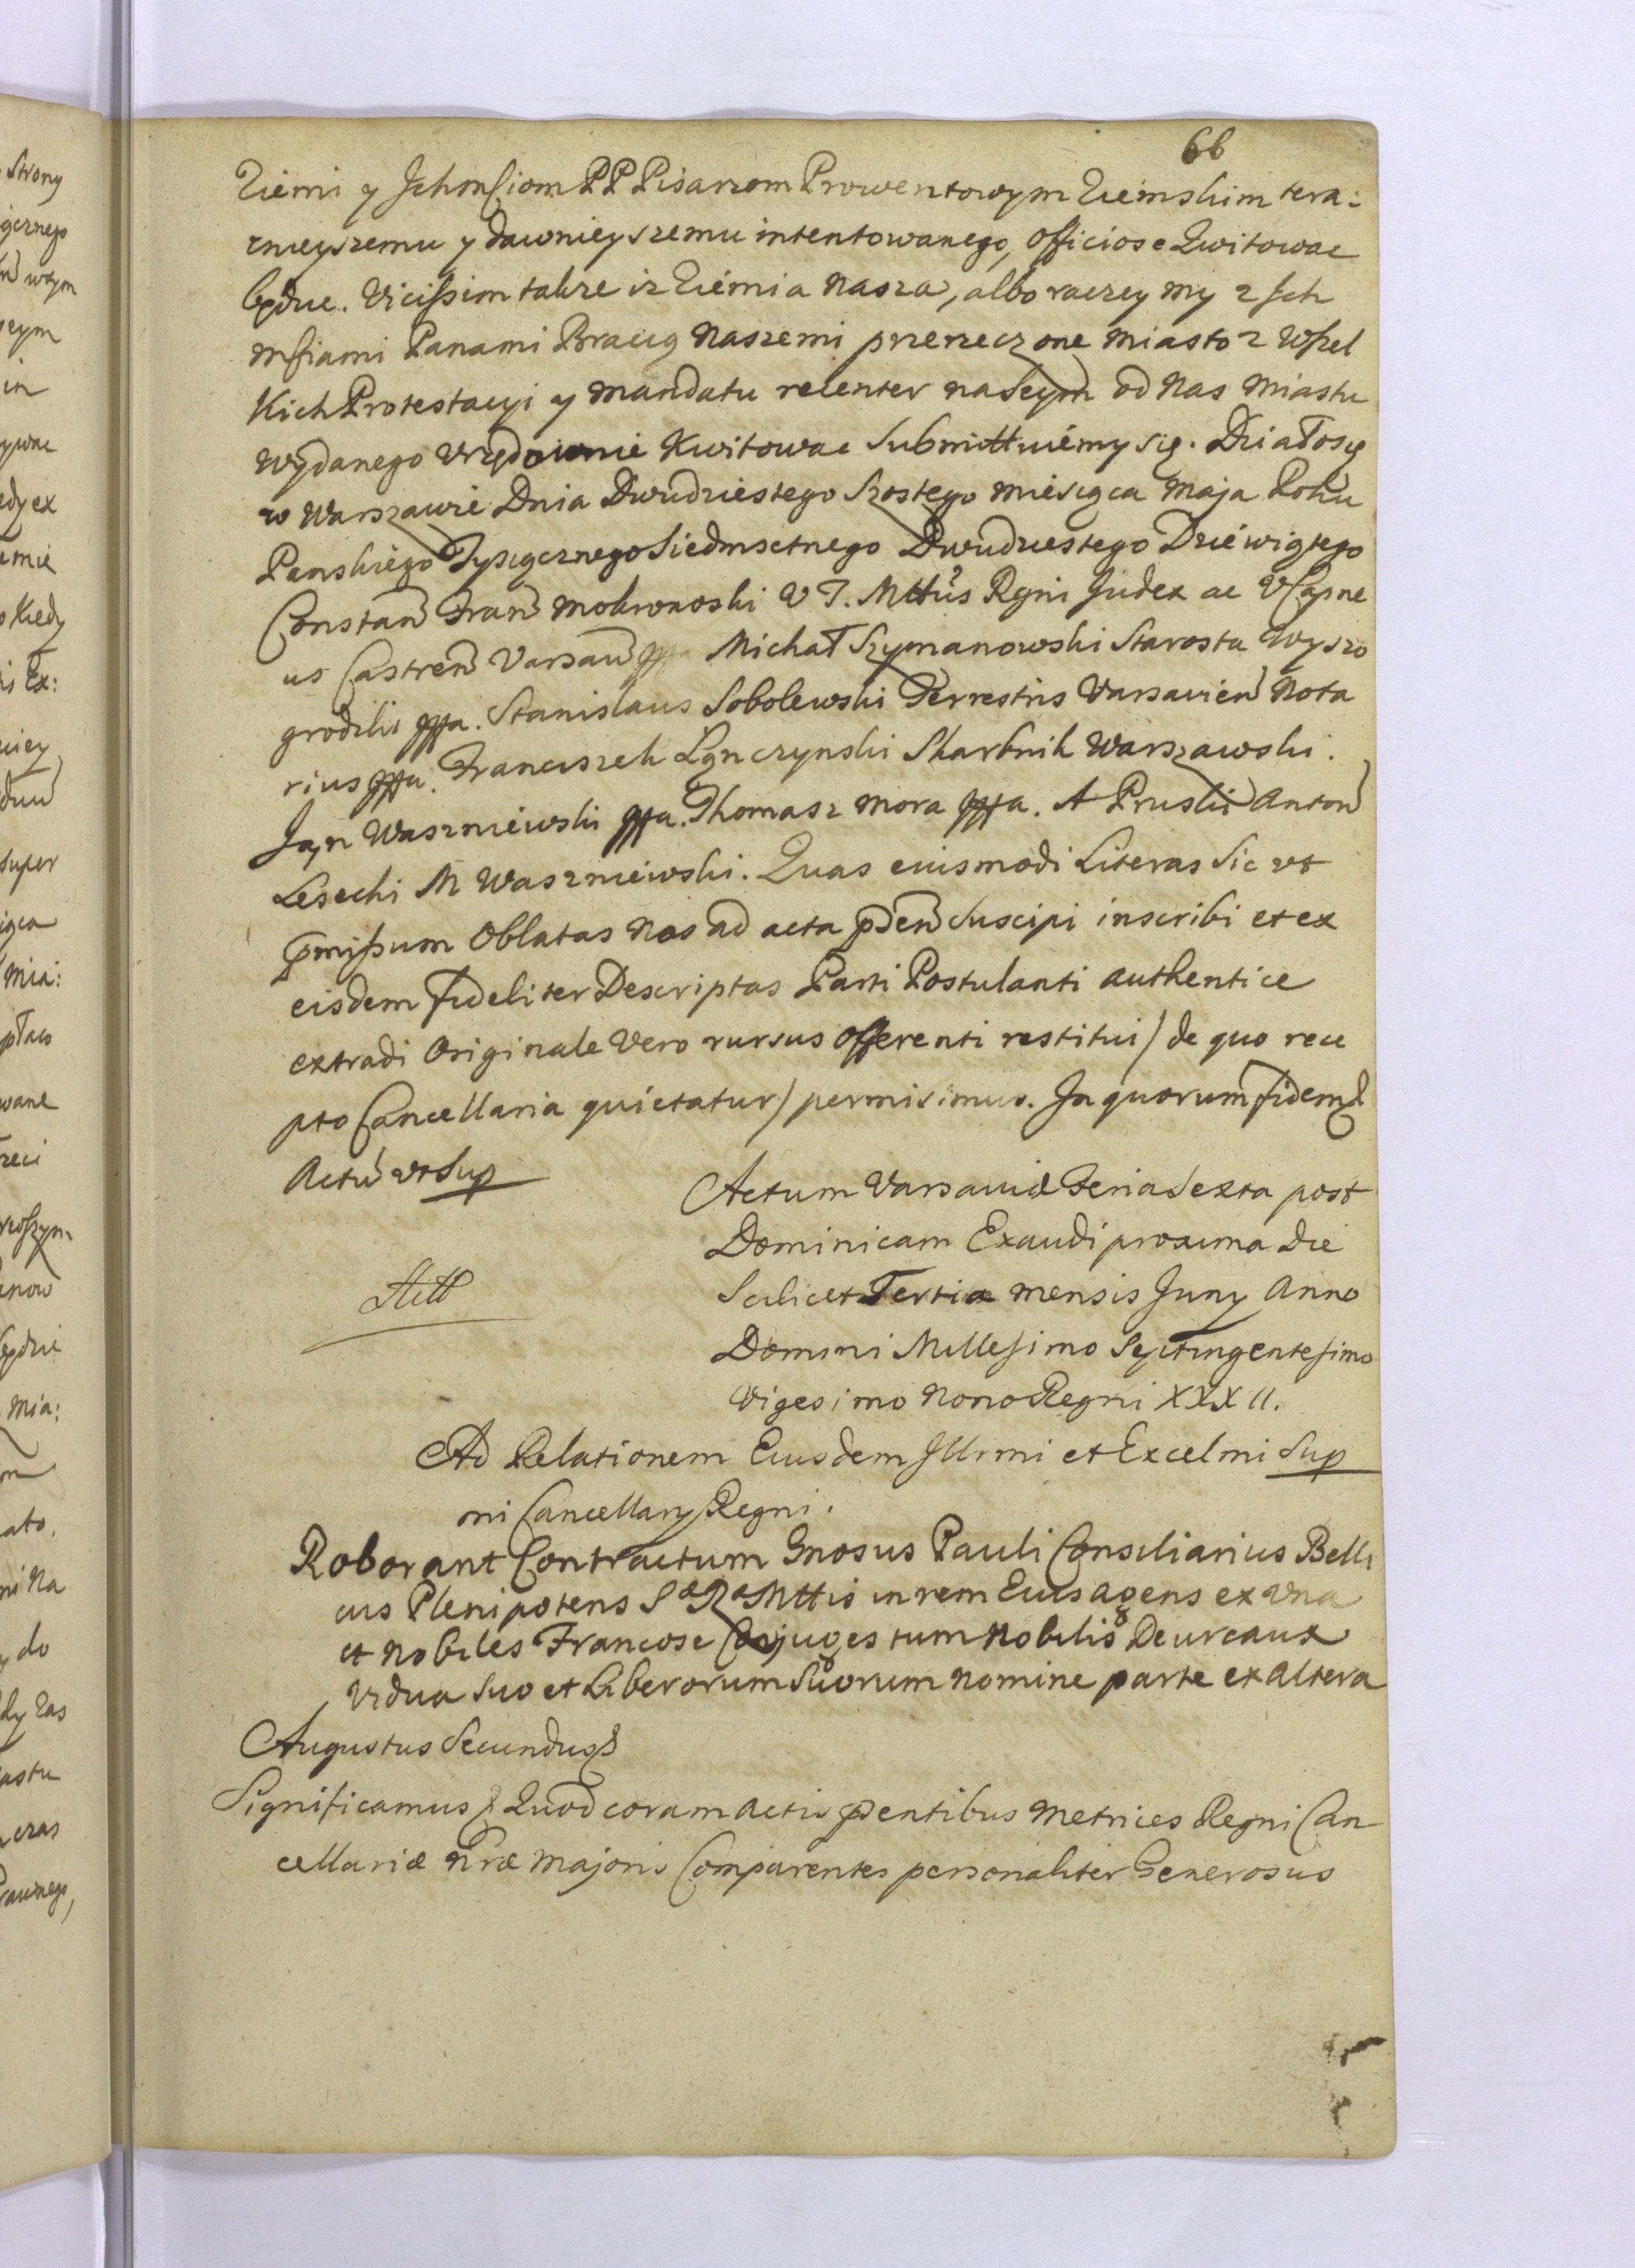 66
Ziemi y Ichmściom PP Pisarzom Prowentowym Ziemskim tera:
znieyszemu y dawnieyszemu intentowanego, officiose Zwitowac
będzie. Vicissim takze iz Ziemia Nasza, albo raczey my z Ich
Mściami Panami Bracią Naszemi przerzeczone Miasto z Wszel
kich Protestacyi y Mandatu recenter od Nas Miastu
Wydanego Vrzędownie Kwitowac Submittuiemy się. Działosię
w Warszawie Dnia Dwudziestego Szostego Miesiąca Maja Roku
Panskiego Tysiącznego Siedmsetnego Dwudziestego Dziewiątego
Constan Fran Mokronoski V T. Mttus Rgni Judex ac VCapne
us Castren Varsavien Michał Szymanowski Starosta Wyszo
grodzki mppa. Stanislaus Sobolewski Terrestris Varsavien Nota
rius mppa. Franciszek Lączynski Skarbnik Warszawski.
Jan Waszniewski mppa. Thomasz Mora mppa. A Pruski Anton
Lesecki M Waszniewski. Quas eiusmodi Literas Sic vt
pmissum Oblatas Nos ad acta pden Suscipi inscribi et ex
eisdem fideliter Descriptas Parti Postulanti authentice
extradi Originale Vero rursus Offerenti restitui / de quo rece
pto Cancellaria quietatur / permisimus. In quorum fidem &
Actu vt Sup
Actum Varsaviæ Feria Sexta post
Dominicam Exaudi proxima Die
Scilicet Tertia mensis Juny Anno
Domini Millesimo Septingentesimo
Vigesimo Nono Regni XXXII.
Ad Relationem Eiusdem Illrmi et Excelmi Sup
mi Cancellary Regni.
Roborant Contractum Gnosus Pauli Consiliarius Belli
cus Plenipotens Sæ Ræ Mttis in rem Eius agens ex vna
et Nobiles Francose Conjuges tum Nobilis Deureaux
Vidua suo et Liberorum Suorum Nomine parte ex Altera
Augustus Secundus &
Significamus & Quod coram Actis pntibus Metrices Regni Can
cellariæ Nræ Majoris Comparentes personaliter Generosus